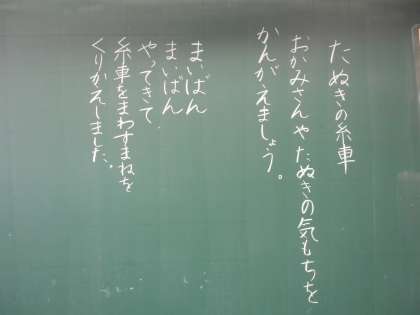 たぬきの糸車
おかみさんやたぬきの気もちを
かんがえましょう。
まいばん
まいばん
やってきて、
糸車をまわすまねを
くりかえしました。